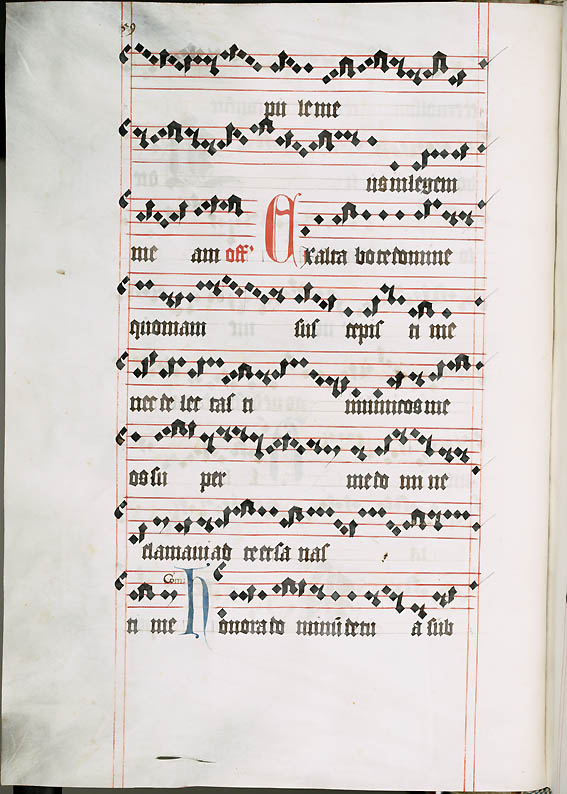 59
pu le me
us in legem
me am off' Exalta bo te domine
quoniam sus cepis ti me
nec de lec tas ti inimicos me
os su per me do mi ne
clamavi ad te et sa nas
Com
ti me honora do minū de tu a sub